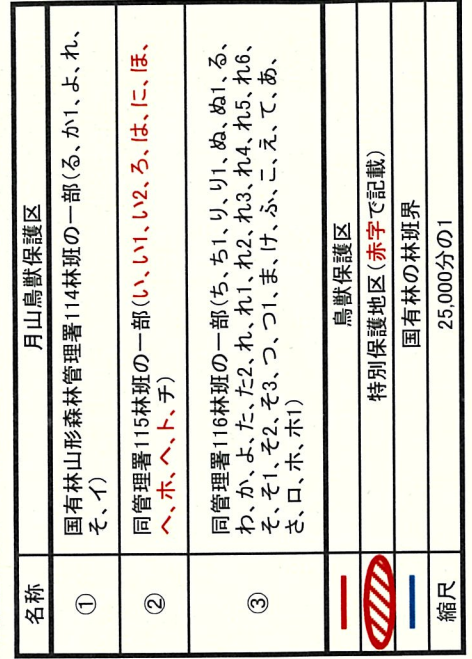 名称 月山鳥獣保護区
① 国有林山形森林管理署114林班の一部(る、か1、よ、れ、
そ、イ)
② 同管理署115林班の一部(い、い1、い2、ろ、は、に、ほ、
へ、ホ、ヘ、ト、チ)
③ 同管理署116林班の一部(ち、ち1、り、り1、ぬ、ぬ1、る、
わ、か、よ、た、た2、れ、れ1、れ2、れ3、れ4、れ5、れ6、
そ、そ1、そ2、そ3、つ、つ1、ま、け、ふ、こ、え、て、あ、
さ、ロ、ホ、ホ1)
鳥獣保護区
特別保護地区(赤字で記載)
国有林の林班界
縮尺 25,000分の1